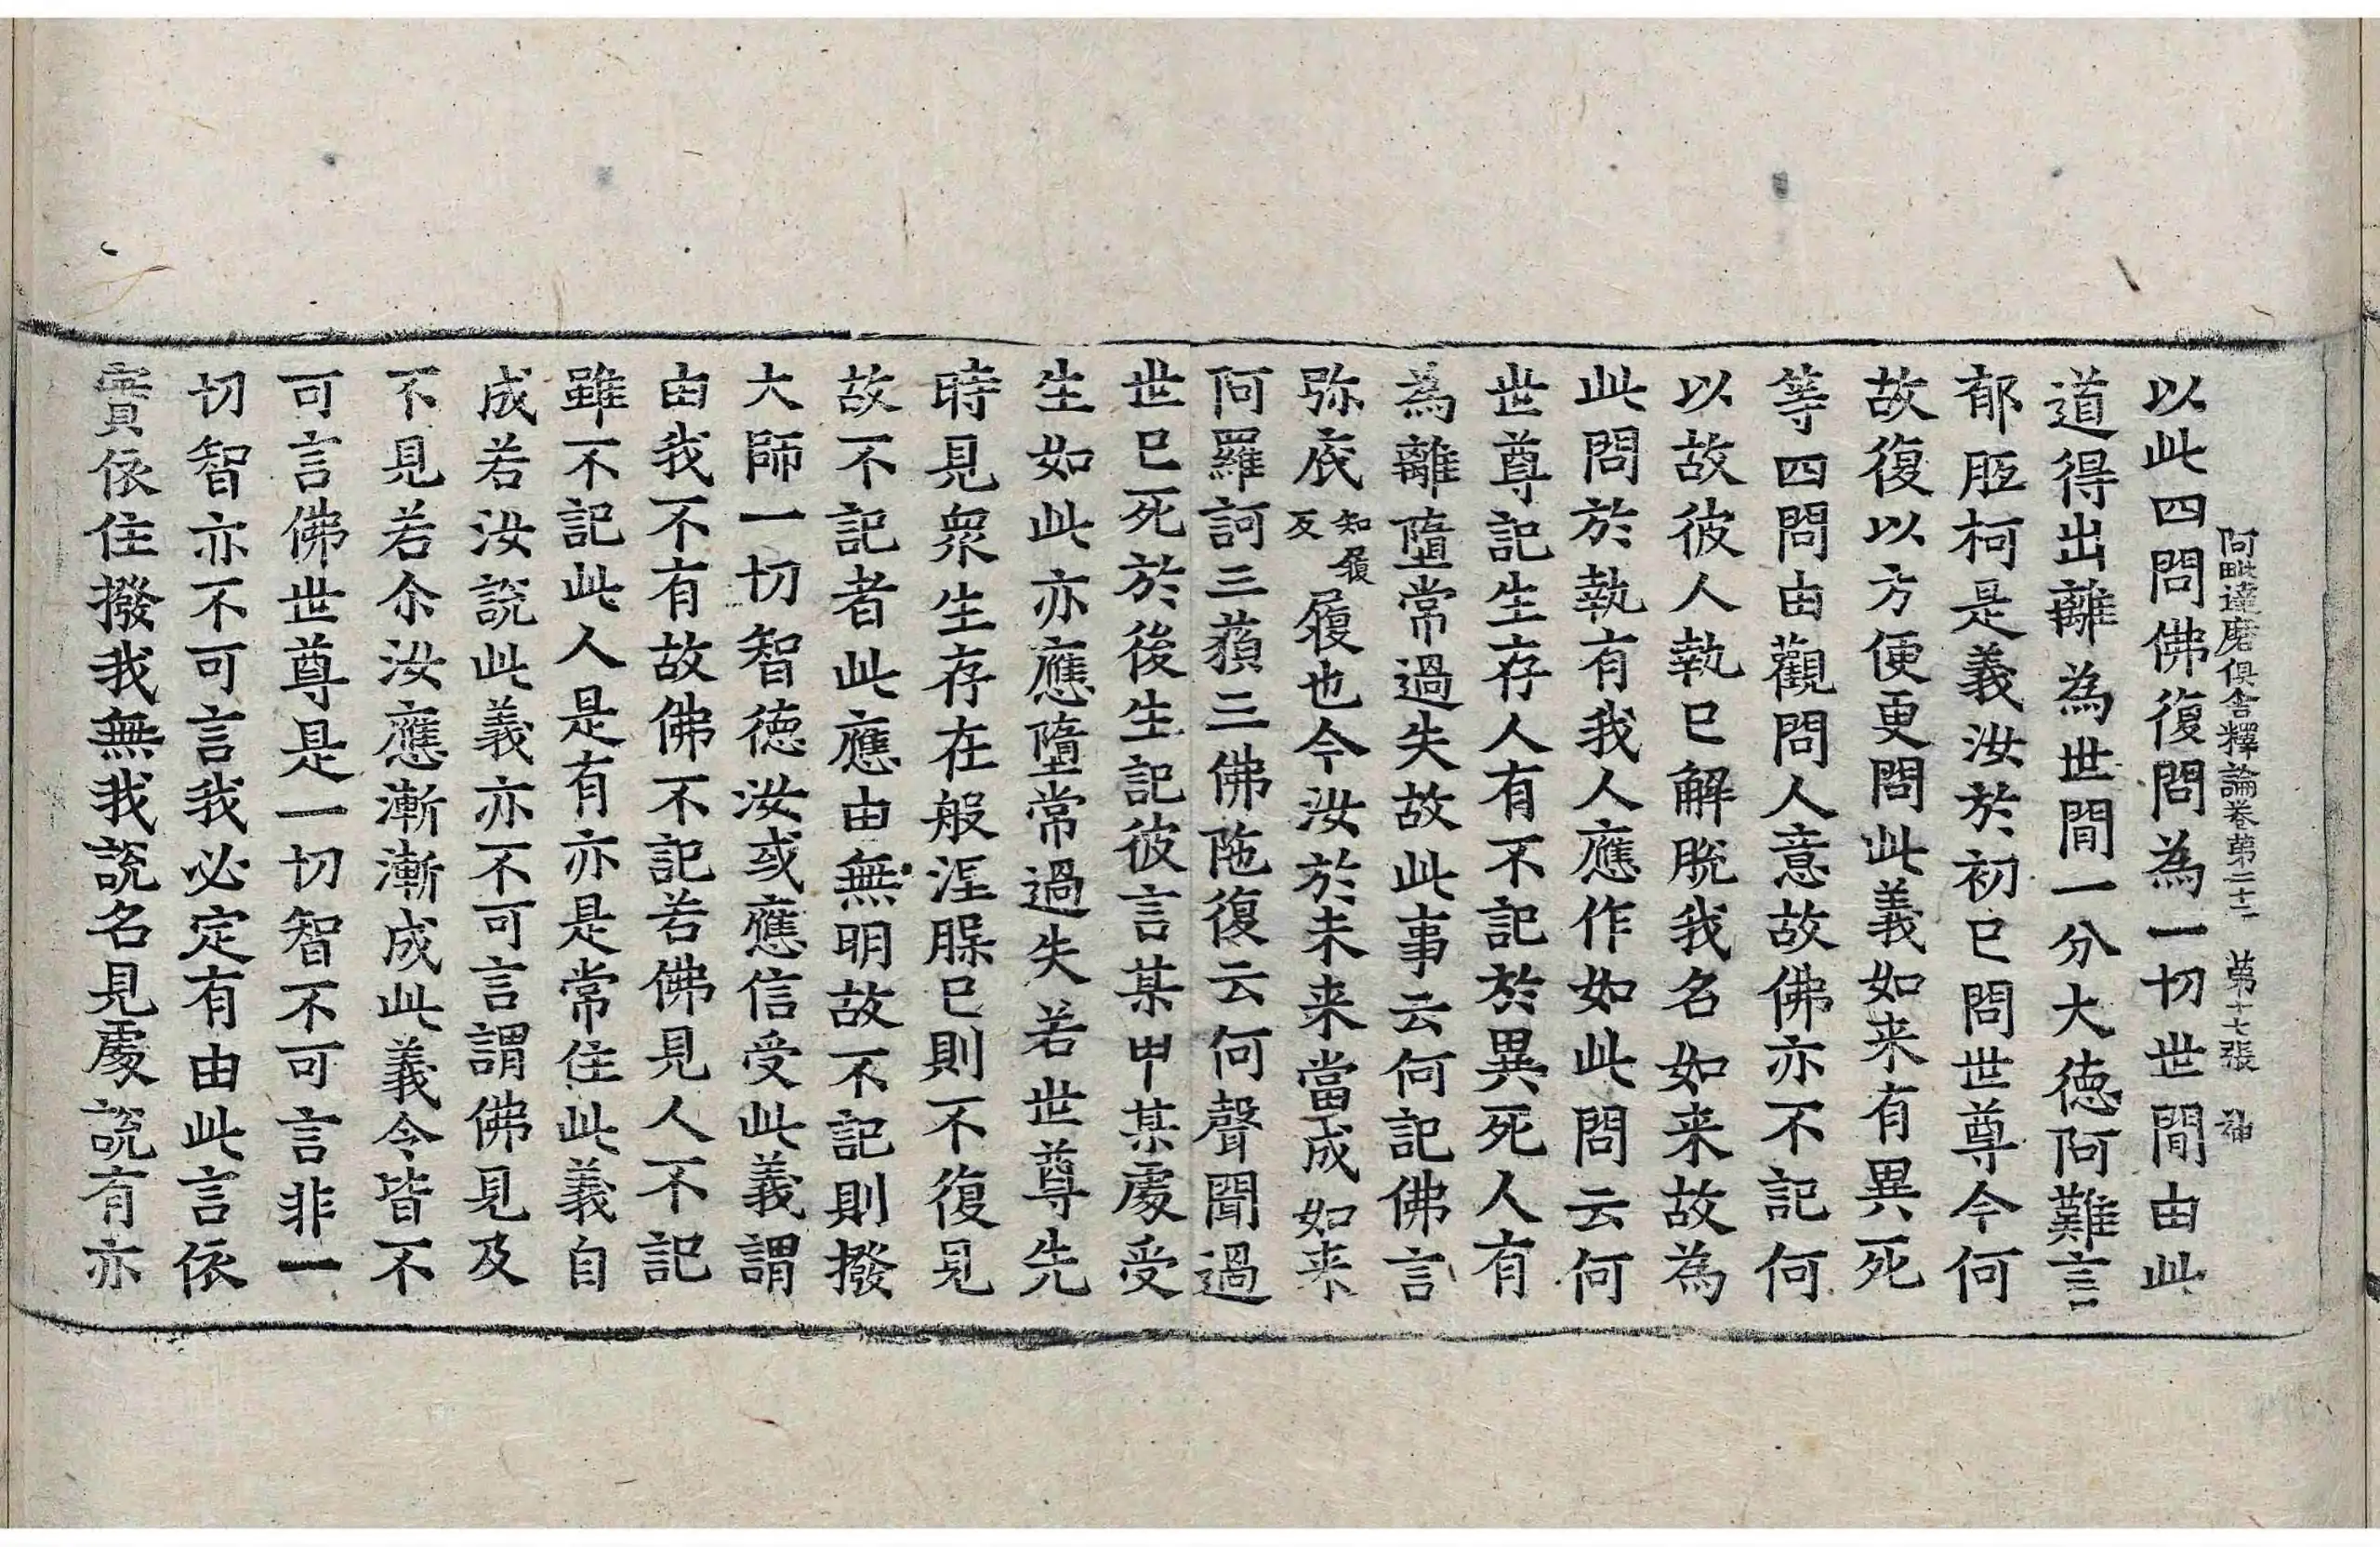 阿毗達磨俱舍釋論卷第二十二 第十七張 神
以此四問佛復問為一切世間由此
道得出離為世間一分大德阿難言
郁胝柯是義汝於初已問世尊今何
故復以方便更問此義如来有異死
等四問由觀問人意故佛亦不記何
以故彼人執已解脫我名如来故為
此問於執有我人應作如此問云何
世尊記生存人有不記於異死人有
為離墮常過失故此事云何記佛言
弥底知履反履也今汝於未来當成如来
阿羅訶三藐三佛陁復云何聲聞過
世已死於後生記彼言某甲某處受
生如此亦應墮常過失若世尊先
時見衆生存在般涅槃已則不復見
故不記者此應由無明故不記則撥
大師一切智德汝或應信受此義謂
由我不有故佛不記若佛見人不記
雖不記此人是有亦是常住此義自
成若汝說此義亦不可言謂佛見及
不見若尒汝應漸漸成此義令皆不
可言佛世尊是一切智不可言非一
切智亦不可言我必定有由此言依
實依住撥我無我說名見處說有亦